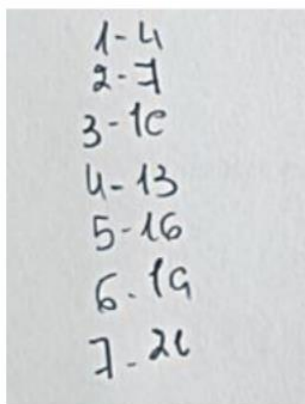 1-4
2-7
3-10
4-13
5-16
6-19
7-20